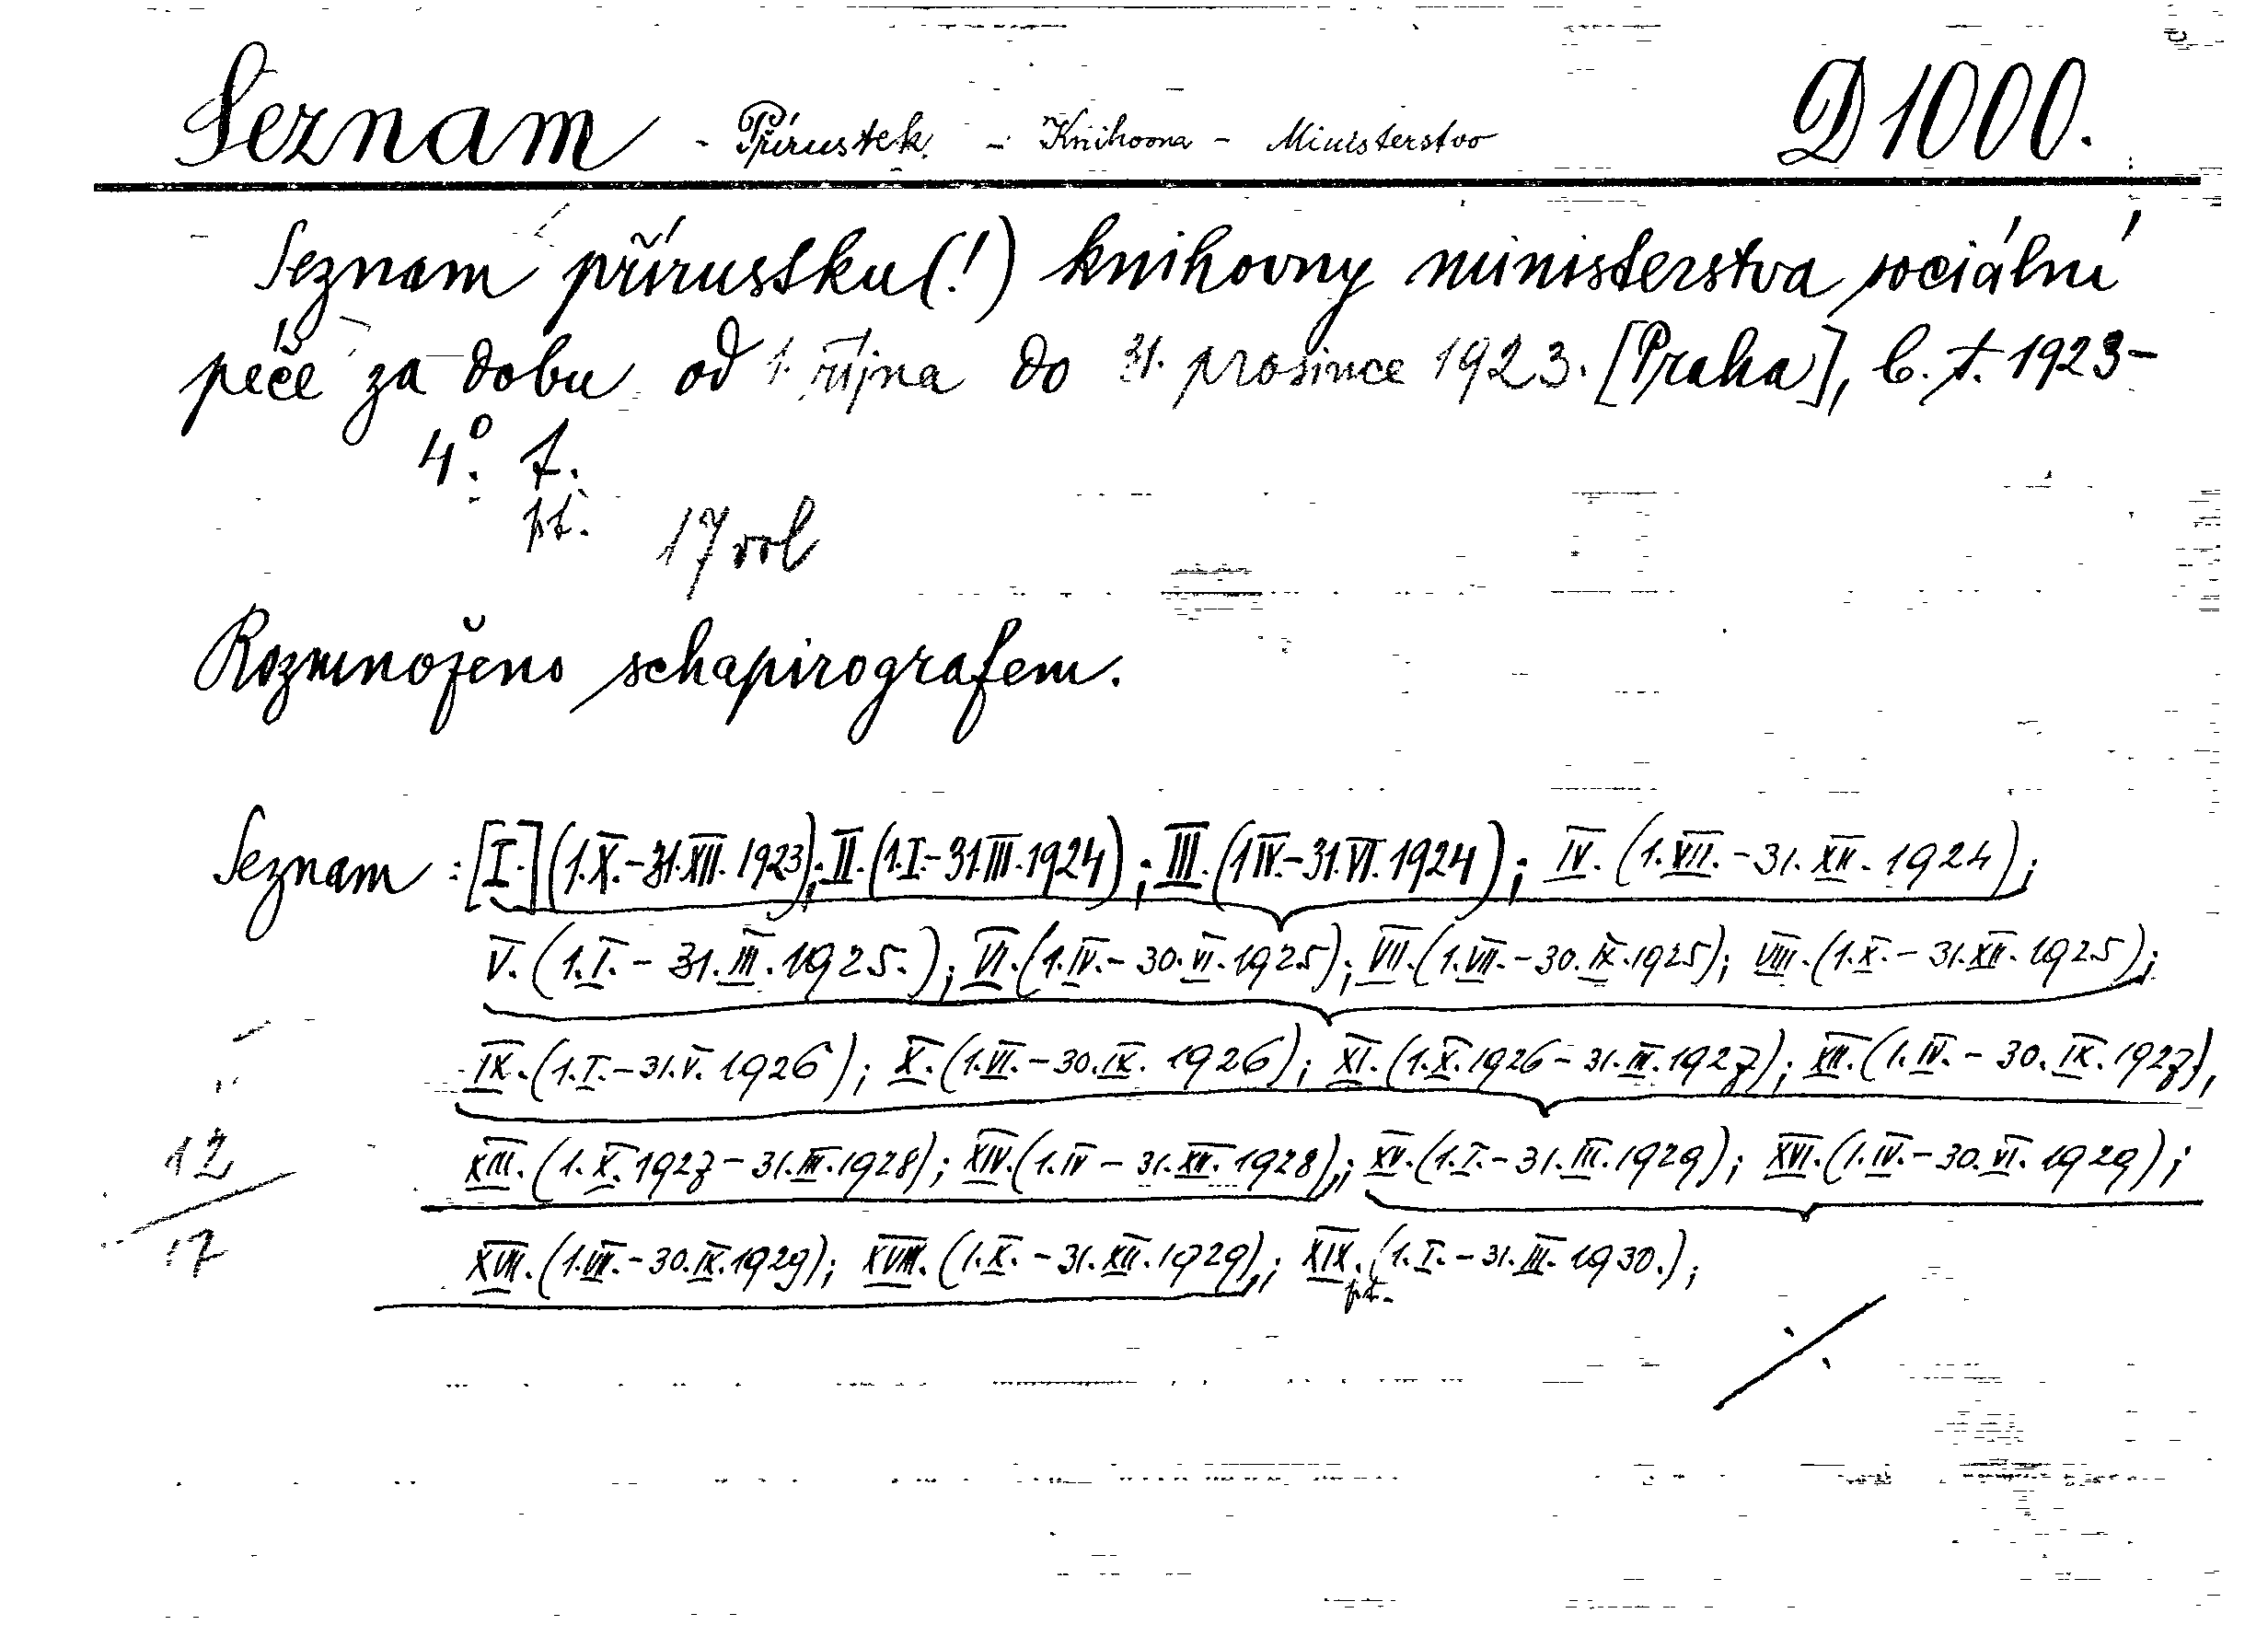 Seznam - Přírustek - Knihovna - Ministerstvo D 1000.
Seznam přírustku(!) knihovny ministerstva sociální
péče za dobu od 1. října do 31. prosince 1923. [Praha], b. t. 1923-
4°. t.
pt. 17 vol
Rozmnoženo schapirografem.
Seznam : [I.] (1.X.-31.XII.1923); II. (1.I.-31.III.1924); III. (1 IV.-31.VI.1924); IV. (1.VII.-31.XII.1924);
V. (1.I.-31.III.1925.); VI. (1.IV.-30.VI.1925); VII. (1.VII.-30.IX.1925); VIII. (1.X.-31.XII.1925);
IX. (1.I.-31.V.1926); X. (1.VI.-30.IX.1926); XI. (1.X.1926-31.III.1927); XII. (1.IV.-30.IX.1927),
XIII. (1.X.1927-31.III.1928); XIV. (1.IV-31.XII.1928); XV. (1.I.-31.III.1929); XVI. (1.IV.-30.VI.1929);
XVII. (1.VII.-30.IX.1929); XVIII. (1.X.-31.XII.1929); XIX. (1.I.-31.III.1930.);
pt.
12
17